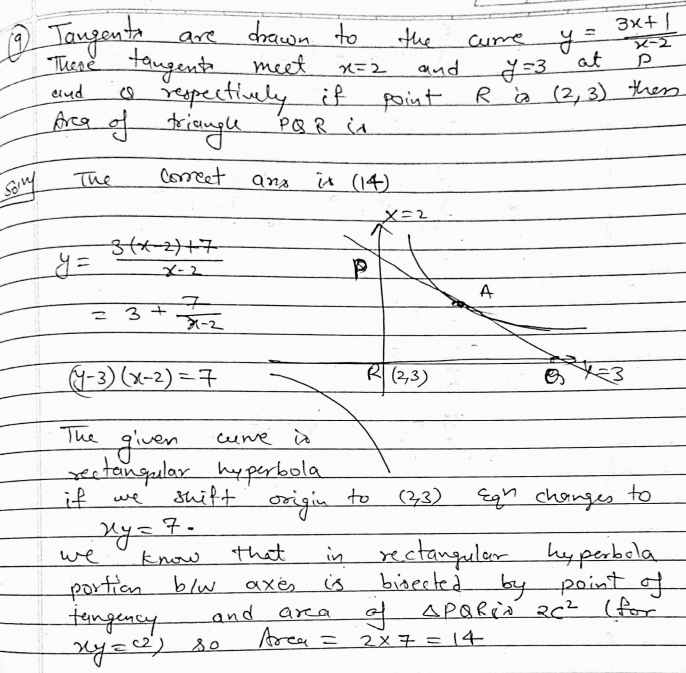 9) Tangents are drawn to the curve y = (3x+1)/(x-2)
These tangents meet x=2 and y=3 at P
and Q respectively if point R is (2,3) then
Area of triangle PQR is
Soln/ The correct ans is (14)
x=2
y = (3(x-2)+7)/(x-2)
P
A
= 3 + 7/(x-2)
(y-3)(x-2)=7
R (2,3)
Q
y=3
The given curve is
rectangular hyperbola
if we shift origin to (2,3) Eqn changes to
xy=7.
we know that in rectangular hyperbola
portion b/w axes is bisected by point of
tangency and area of ΔPQR is 2c² (for
xy=c²) so Area = 2x7 = 14